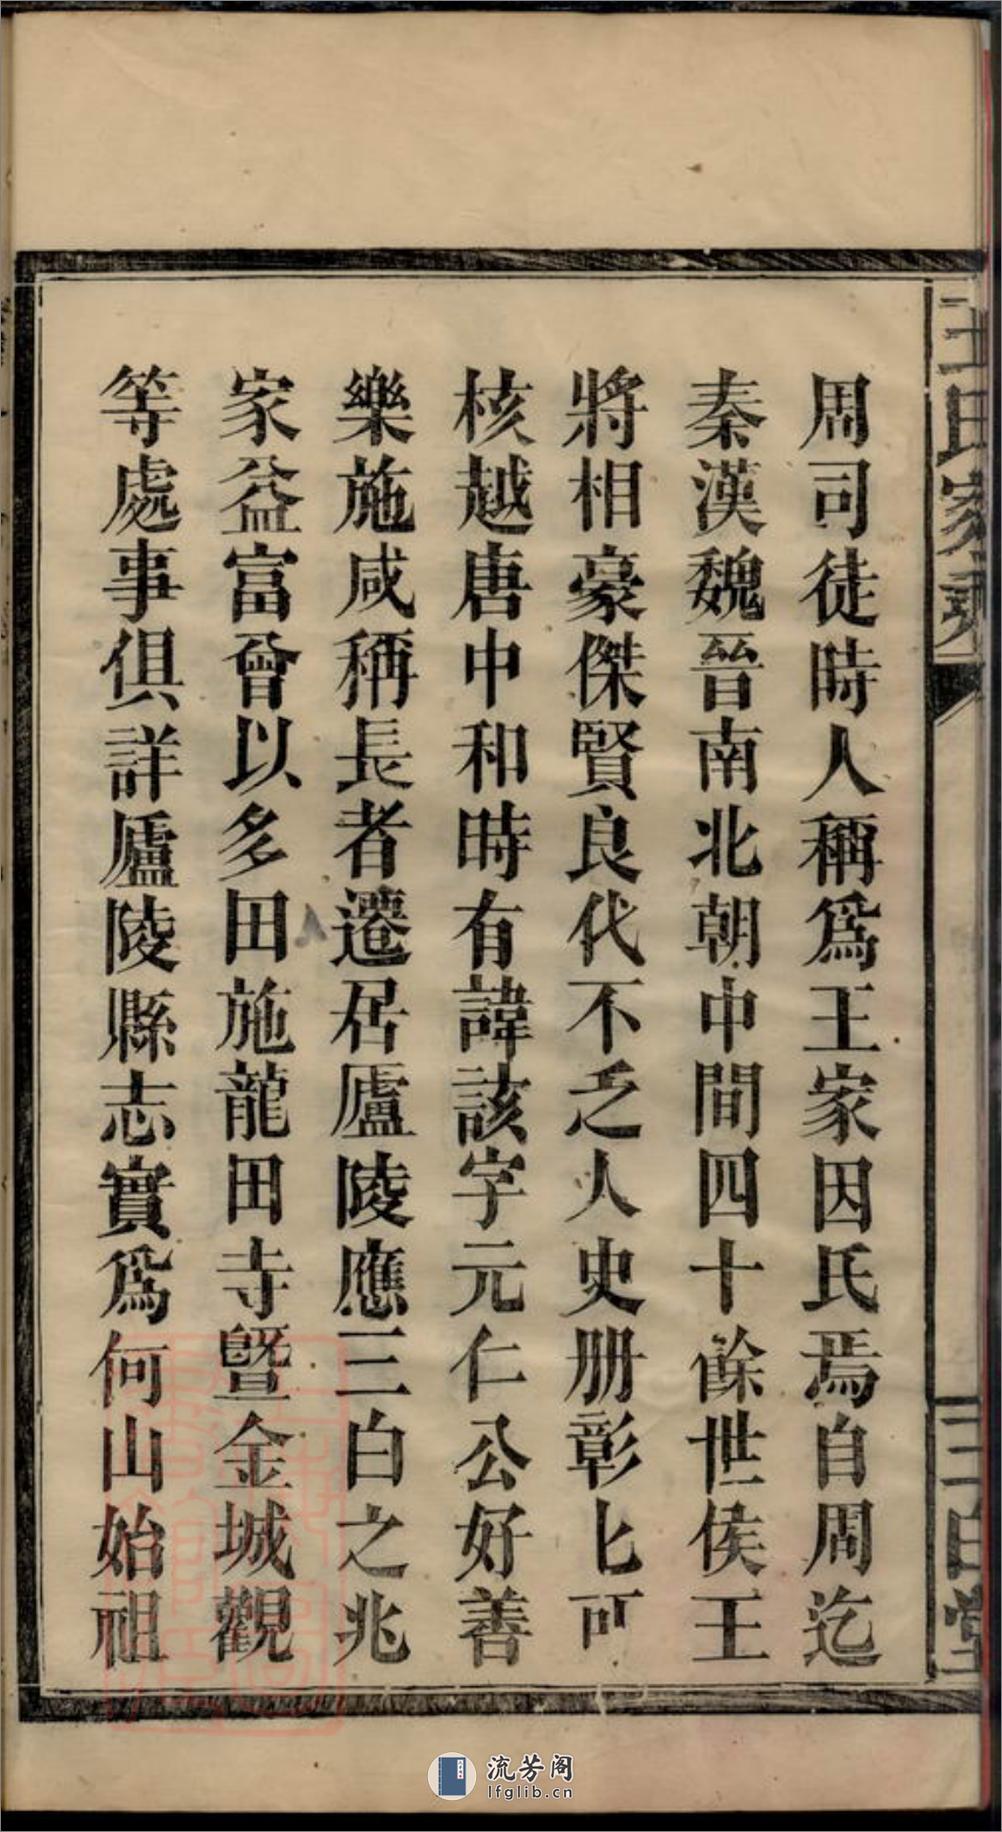 周司徒時人稱爲王家因氏焉自周迄
秦漢魏晉南北朝中間四十餘世侯王
將相豪傑賢良代不乏人史册彰匕可
核越唐中和時有諱該字元仁公好善
樂施咸稱長者遷居廬陵應三白之兆
家益富曾以多田施龍田寺暨金城觀
等處事俱詳廬陵縣志實爲何山始祖
王氏家乘
三白堂
流芳阁
lfglib.cn